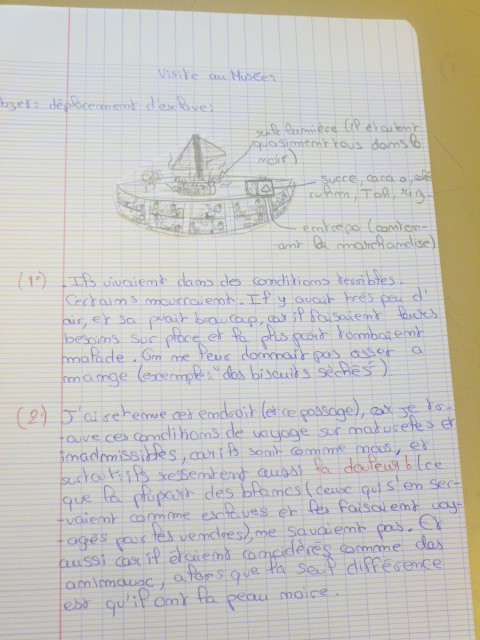 Visite au Musée:
objet: déplacement d'esclave:
seule lumière (il étaient
quasiment tous dans le
noir)
sucre, cacao, café
ruhm, Tab, riz
entrepo (conten-
ant la marchandise)
(1°) . Ils vivaient dans des conditions terribles.
Certains mourraient. Il y avait très peu d'
air, et sa puait beaucoup, car il faisaient leurs
besoins sur place et la plus part tombaient
malade. On ne leur donnait pas asser a
mange (exemple: "des biscuits séchés")
(2°) J'ai retenue cet endroit (et ce passage), car je tr-
-ouve ces conditions de voyage sur
inadmissibles, car ils sont comme nous, et
surtout ils ressentent aussi la douleur! (ce
que la plupart des blancs (ceux qui s'en ser-
-vaient comme esclaves et les faisaient voy-
-agés pour les vendres), ne savaient pas. Et
aussi car il étaient considérés comme des
animaux, alors que la seul différence
est qu'il ont la peau noire.